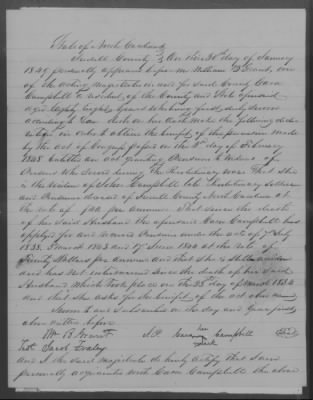 State of North Carolina
Iredell County } On this 30th day of January
1849 personally appeared before me William B. Grant, one
of the acting Magistrates in and for said County Cara
Campbell (a resident of the County and State aforesaid
age Eighty Eight years) who being first duly sworn
according to Law doth on her Oath make the following declar
ation in order to obtain the benefit of the provision made
by the act of Congress passed on the 2d day of February
1848 Entitled an act granting Pensions to Widows of
Persons who served during the Revolutionary War. That she
is the widow of John Campbell late Revolutionary Soldier
and Pensioner deceased of Iredell County North Carolina at
the rate of per annum. That since the death
of her said Husband she the aforesaid Cara Campbell has
applied for and received Pensions under the acts of 7th July
1838. 3 March 1843 and 17th June 1844 at the rate of
Dollars per annum and that she is Still a widow
and has not intermarried since the death of her said
Husband which took place on the 25 day of March 1834
and that she asks for the benefit of the act above
Sworn to and subscribed on the day and year first
above written before
Wm B. Grant J.P. Cara her mark Campbell
Test Jacob Fraley
and I the said magistrate do hereby Certify that I am
personally acquainted with Cara Campbell the above